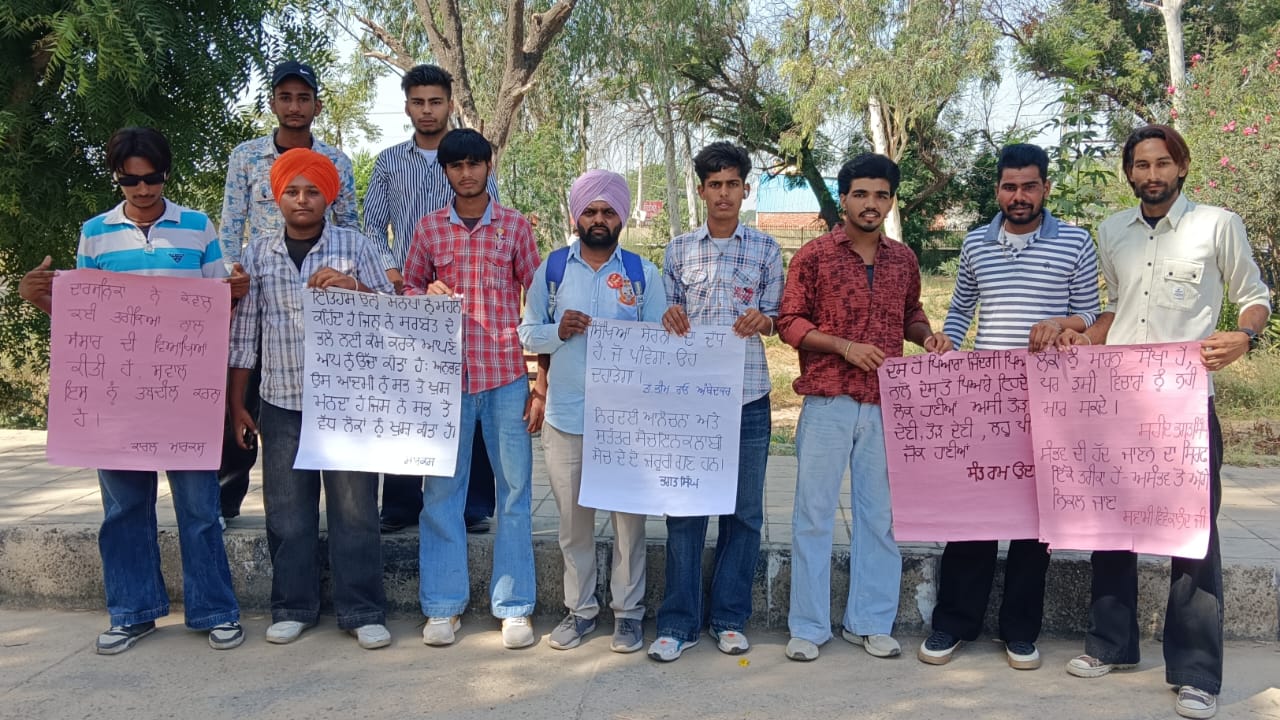 ਦਾਰਸ਼ਨਿਕਾਂ ਨੇ ਕੇਵਲ
ਕਈ ਤਰੀਕਿਆਂ ਨਾਲ
ਸੰਸਾਰ ਦੀ ਵਿਆਖਿਆ
ਕੀਤੀ ਹੈ, ਸਵਾਲ
ਇਸ ਨੂੰ ਤਬਦੀਲ ਕਰਨ
ਹੈ।
ਕਾਰਲ ਮਾਰਕਸ
ਇਤਿਹਾਸ ਉਨ੍ਹਾਂ ਮਨੁੱਖਾਂ ਨੂੰ ਮਹਾਨ
ਕਹਿੰਦਾ ਹੈ ਜਿਨ੍ਹਾਂ ਨੇ ਸਰਬੱਤ ਦੇ
ਭਲੇ ਲਈ ਕੰਮ ਕਰਕੇ ਆਪਣੇ
ਆਪ ਨੂੰ ਉੱਚਾ ਕੀਤਾ ਹੈ: ਅਨੁਭਵ
ਉਸ ਆਦਮੀ ਨੂੰ ਸਭ ਤੋਂ ਖੁਸ਼
ਮੰਨਦਾ ਹੈ ਜਿਸ ਨੇ ਸਭ ਤੋਂ
ਵੱਧ ਲੋਕਾਂ ਨੂੰ ਖੁਸ਼ ਕੀਤਾ ਹੈ।
ਮਾਰਕਸ
ਸਿੱਖਿਆ ਸ਼ੇਰਨੀ ਦਾ ਦੁੱਧ
ਹੈ, ਜੋ ਪੀਵੇਗਾ ਉਹ
ਦਹਾੜੇਗਾ।
ਡਾ. ਭੀਮ ਰਾਓ ਅੰਬੇਦਕਰ
ਨਿਰਦਈ ਆਲੋਚਨਾ ਅਤੇ
ਸੁਤੰਤਰ ਸੋਚ ਇਨਕਲਾਬੀ
ਸੋਚ ਦੇ ਦੋ ਜ਼ਰੂਰੀ ਗੁਣ ਹਨ।
ਭਗਤ ਸਿੰਘ
ਦੇਸ਼ ਹੈ ਪਿਆਰਾ ਜ਼ਿੰਦਗੀ ਪਿਆਰੀ
ਨਾਲੋਂ ਦੇਸ਼ ਤੋਂ ਪਿਆਰੇ ਇਹਦੇ
ਲੋਕ ਹਾਣੀਆਂ ਅਸੀਂ ਤੋੜ
ਦੇਣੀ, ਤੋੜ ਦੇਣੀ, ਲਹੂ ਪੀ
ਜੋਕ ਹਾਣੀਆਂ
ਸੰਤ ਰਾਮ ਉਦਾ
ਲੋਕਾਂ ਨੂੰ ਮਾਰਨਾ ਸੌਖਾ ਹੈ,
ਪਰ ਤੁਸੀਂ ਵਿਚਾਰਾਂ ਨੂੰ ਨਹੀਂ
ਮਾਰ ਸਕਦੇ।
ਸ਼ਹੀਦ ਭਗਤ ਸਿੰ
ਸੰਭਵ ਦੀ ਹੱਦ ਜਾਣਨ ਦਾ ਸਿਰਫ਼
ਇੱਕੋ ਤਰੀਕਾ ਹੈ- ਅਸੰਭਵ ਤੋਂ ਅੱਗੇ
ਨਿਕਲ ਜਾਣਾ
ਸਵਾਮੀ ਵਿਵੇਕਾਨੰਦ ਜੀ